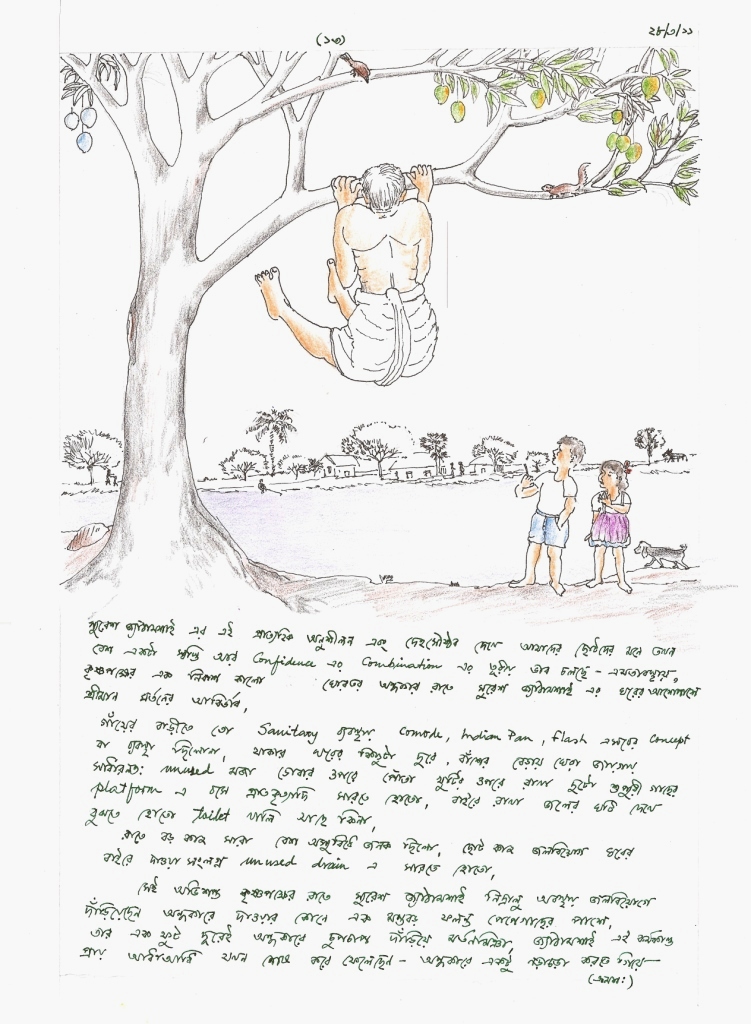 (১৩)
২৮/৩/১১
সুরেশ জ্যাঠামশাই এর এই প্রাত্যহিক অনুশীলন এবং দেহসৌষ্ঠব দেখে আমাদের ছোটদের মনে তখন
বেশ একটা স্বস্তি আর Confidence এর Combination এর তূরীয় ভাব চলছে - এমতাবস্থায়,
কৃষ্ণপক্ষের এক নিকশ কালো ঘোরতর অন্ধকার রাতে সুরেশ জ্যাঠামশাই এর ঘরের আশেপাশে
শ্রীমান মর্তনের আবির্ভাব,
গাঁয়ের বাড়ীতে তো Sanitary ব্যবস্থায় Comode, Indian Pan, Flash এসবের Concept
বা ব্যবস্থা ছিলোনা, থাকার ঘরের কিছুটা দূরে, বাঁশের বেড়ায় ঘেরা জায়গায়
সাধারণতঃ unused মজা ডোবার ওপরে পোঁতা খুটির ওপরে রাখা দুটো সুপুরী গাছের
platform এ বসে প্রাতঃকৃত্যাদি সারতে হোতো, বাইরে রাখা জলের ঘটি দেখে
বুঝতে হোতো toilet খালি আছে কিনা,
রাতে বড় কাজ সারা বেশ অসুবিধে জনক ছিলো, ছোট কাজ জলবিয়োগ ঘরের
বাইরে দাওয়া সংলগ্ন unused drain এ সারতে হোতো,
সেই অভিশপ্ত কৃষ্ণপক্ষের রাতে সুরেশ জ্যাঠামশাই নিদ্রালু অবস্থায় জলবিয়োগে
দাঁড়িয়েছেন অন্ধকারে দাওয়ার কোনে এক মস্তবড় ফলন্ত পেপেগাছের পাশে,
তার এক ফুট দূরেই অন্ধকারে চুপচাপ দাঁড়িয়ে জ্যাঠামশাই এই কর্মকাণ্ড
প্রায় আধাআধি যখন শেষ করে ফেলেছেন - অন্ধকারে একটু নড়াচড়া করতে গিয়ে
(ক্রমশঃ)